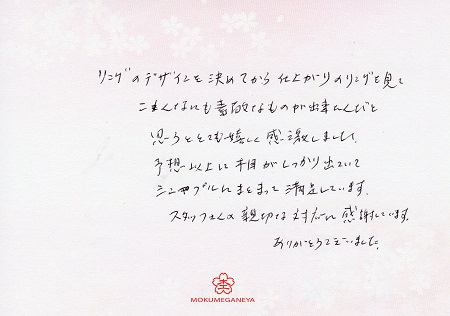 リングのデザインを決めてから仕上がりのリングを見て
こんなにも素敵なものが出来たんだと
思うととても嬉しく感激しました。
予想以上に木目がしっかり出ていて
シンプルにまとまって満足しています。
スタッフさんの親切な対応に感謝しています。
ありがとうございました。
MOKUMEGANEYA